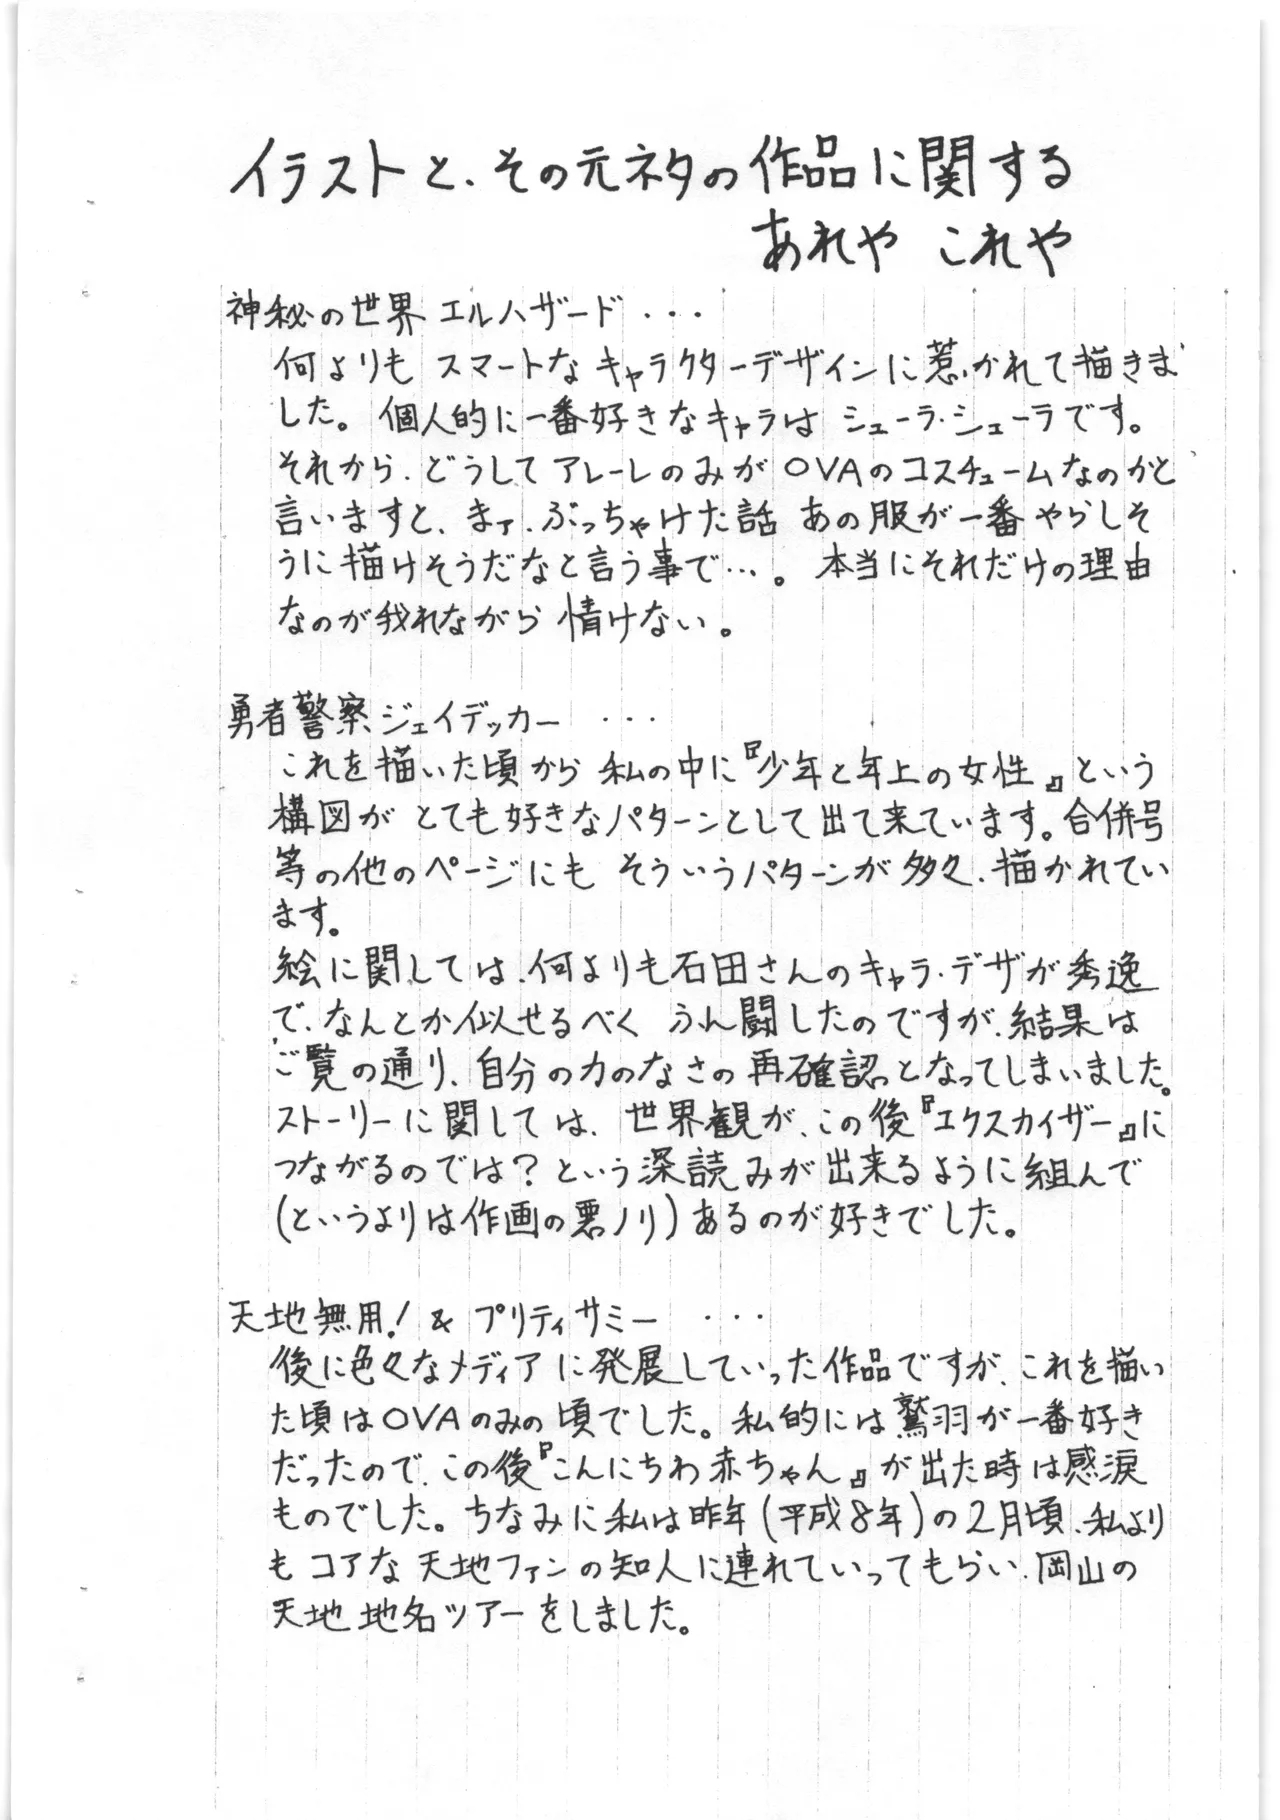 イラストと、その元ネタの作品に関する
あれや これや
神秘の世界 エルハザード ・・・
何よりも スマートな キャラクターデザインに惹かれて描きま
した。個人的に一番好きなキャラは シェーラ・シェーラです。
それから、どうしてアレーレのみが OVAのコスチュームなのかと
言いますと、まァ、ぶっちゃけた話 あの服が一番やらしそ
うに描けそうだなと言う事で…。本当にそれだけの理由
なのが我れながら 情けない。
勇者警察ジェイデッカー ・・・
これを描いた頃から 私の中に『少年と年上の女性』という
構図が とても好きなパターンとして出て来ています。合併号
等の他のページにも そういうパターンが多々、描かれてい
ます。
絵に関しては、何よりも石田さんのキャラ・デザが秀逸
で、なんとか似せるべく ふん闘したのですが、結果は
ご覧の通り、自分の力のなさの再確認となってしまいました。
ストーリーに関しては、世界観が、この後『エクスカイザー』に
つながるのでは？という深読みが出来るように組んで
(というよりは作画の悪ノリ)あるのが好きでした。
天地無用！& プリティサミー ・・・
後に色々なメディアに発展していった作品ですが、これを描い
た頃はOVAのみの頃でした。私的には鷲羽が一番好き
だったので、この後『こんにちわ赤ちゃん』が出た時は感涙
ものでした。ちなみに私は昨年(平成8年)の2月頃、私より
もコアな天地ファンの知人に連れていってもらい、岡山の
天地 地名ツアーをしました。